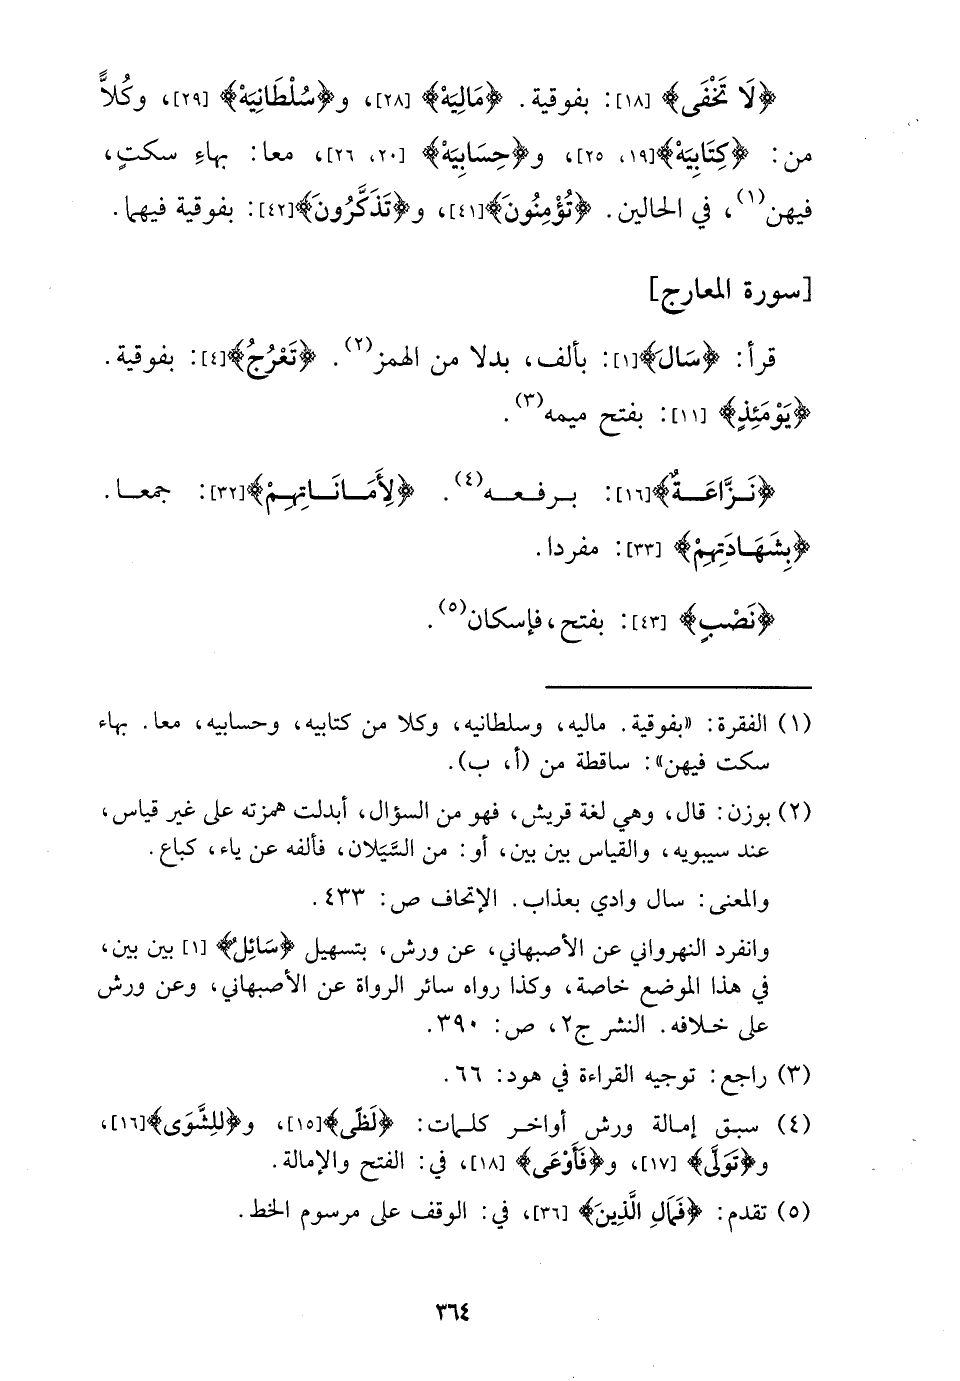 ﴿لَا تَخْفَى﴾ [١٨]: بفوقية. ﴿مَالِيَهْ﴾ [٢٨]، و﴿سُلْطَانِيَهْ﴾ [٢٩]، وكُلاًّ
من: ﴿كِتَابِيَهْ﴾[١٩، ٢٥]، و﴿حِسَابِيَهْ﴾ [٢٠، ٢٦]، معا: بهاءِ سكتٍ،
فيهن(١)، في الحالين. ﴿تُؤْمِنُونَ﴾[٤١]، و﴿تَذَكَّرُونَ﴾[٤٢]: بفوقية فيهما.
[سورة المعارج]
قرأ: ﴿سَالَ﴾[١]: بألف، بدلا من الهمز(٢). ﴿تَعْرُجُ﴾[٤]: بفوقية.
﴿يَوْمَئِذٍ﴾ [١١]: بفتح ميمه(٣).
﴿نَـزَّاعَـةٌ﴾[١٦]: بـرفـعـه(٤). ﴿لِأَمَـانَـاتِهِـمْ﴾[٣٢]: جمعـا.
﴿بِشَهَـادَتِهِمْ﴾ [٣٣]: مفردا.
﴿نَصْبٍ﴾ [٤٣]: بفتح، فإسكان(٥).
(١) الفقرة: «بفوقية. ماليه، وسلطانيه، وكلا من كتابيه، وحسابيه، معا. بهاء
سكت فيهن»: ساقطة من (أ، ب).
(٢) بوزن: قال، وهي لغة قريش، فهو من السؤال، أبدلت همزته على غير قياس،
عند سيبويه، والقياس بين بين، أو: من السَّيَلان، فألفه عن ياء، كباع.
والمعنى: سال وادي بعذاب. الإتحاف ص: ٤٣٣.
وانفرد النهرواني عن الأصبهاني، عن ورش، بتسهيل ﴿سَائِلٌ﴾ [١] بين بين،
في هذا الموضع خاصة، وكذا رواه سائر الرواة عن الأصبهاني، وعن ورش
على خـلافه. النشر ج٢، ص: ٣٩٠.
(٣) راجع: توجيه القراءة في هود: ٦٦.
(٤) سبـق إمـالة ورش أواخـر كلـمات: ﴿لَظَى﴾[١٥]، و﴿للِشَّوَى﴾[١٦]،
و﴿تَوَلَّى﴾ [١٧]، و﴿فَأَوْعَى﴾ [١٨]، في: الفتح والإمالة.
(٥) تقدم: ﴿فَمَالِ الَّذِينَ﴾ [٣٦]، في: الوقف على مرسوم الخط.
٣٦٤